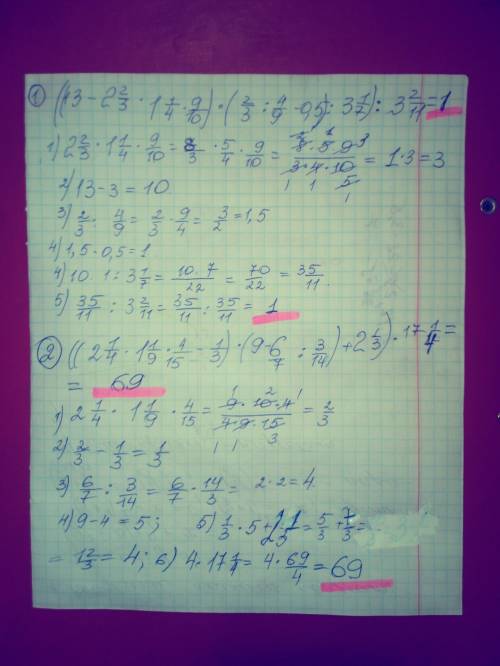 ① ((13 - 2 2/3 · 1 1/4 · 9/10) · (2/3 : 4/9 - 0,5) : 3 1/7) : 3 2/11 = 1
1) 2 2/3 · 1 1/4 · 9/10 = 8/3 · 5/4 · 9/10 = 8·5·9/3·4·10 = 1·3 = 3
2) 13 - 3 = 10
3) 2/3 : 4/9 = 2/3 · 9/4 = 3/2 = 1,5
4) 1,5 - 0,5 = 1
4) 10 · 1 : 3 1/7 = 10·7/22 = 70/22 = 35/11.
5) 35/11 : 3 2/11 = 35/11 : 35/11 = 1
② ((2 1/4 · 1 1/9 · 4/15 - 1/3) · (9 - 6/7 : 3/14) + 2 1/3) · 17 1/4 =
= 69
1) 2 1/4 · 1 1/9 · 4/15 = 9·10·4/4·9·15 = 2/3
2) 2/3 - 1/3 = 1/3
3) 6/7 : 3/14 = 6/7 · 14/3 = 2·2 = 4
4) 9 - 4 = 5; 5) 1/3 · 5 + 2 1/3 = 5/3 + 7/3 =
= 12/3 = 4; 6) 4 · 17 1/4 = 4 · 69/4 = 69